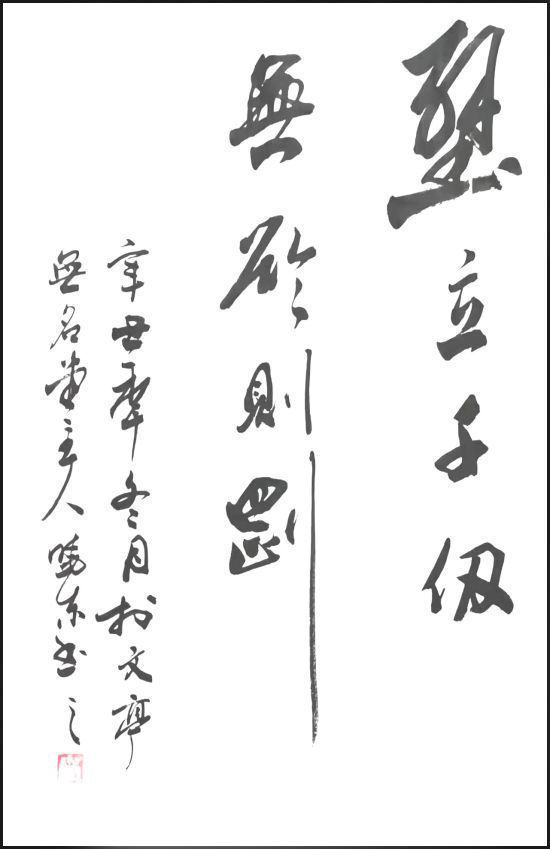 壁立千仞
無欲則剛
辛丑年冬月於文亭
無名堂主人曉東書之